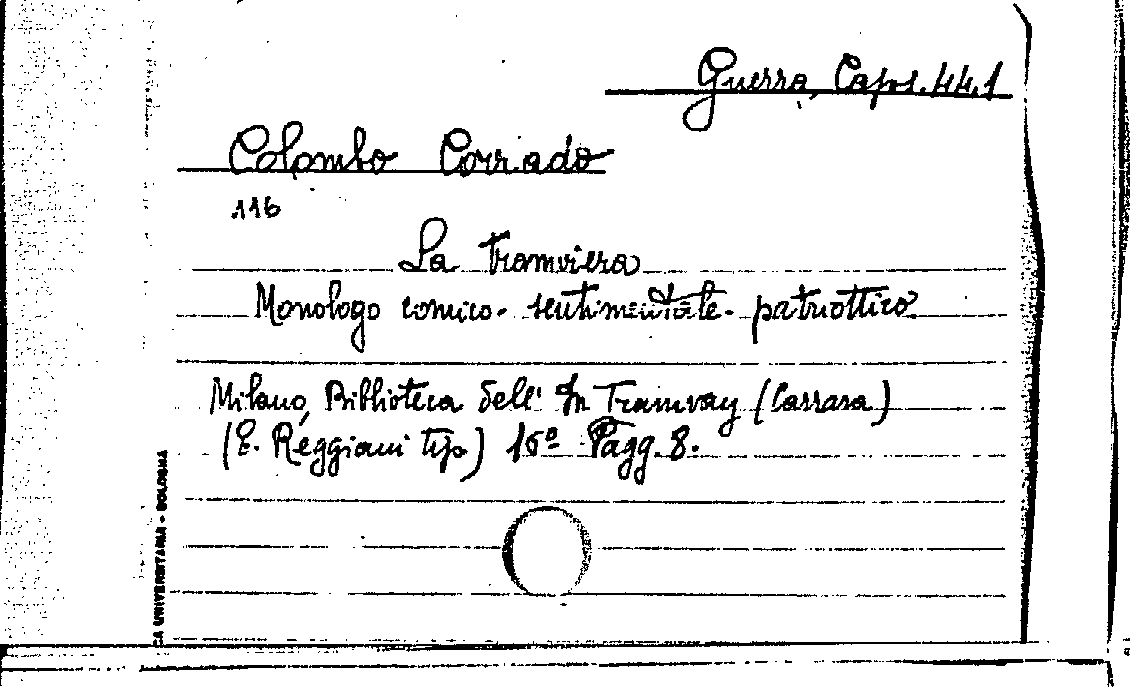 Guerra, Caps. 44.1
Colombo Corrado
116
La Tramviera
Monologo comico-sentimentale-patriottico
Milano, Biblioteca dell' In Tramvay (Carrara)
(E. Reggiani tip) 16º Pagg. 8.
CA UNIVERSITARIA - BOLOGNA